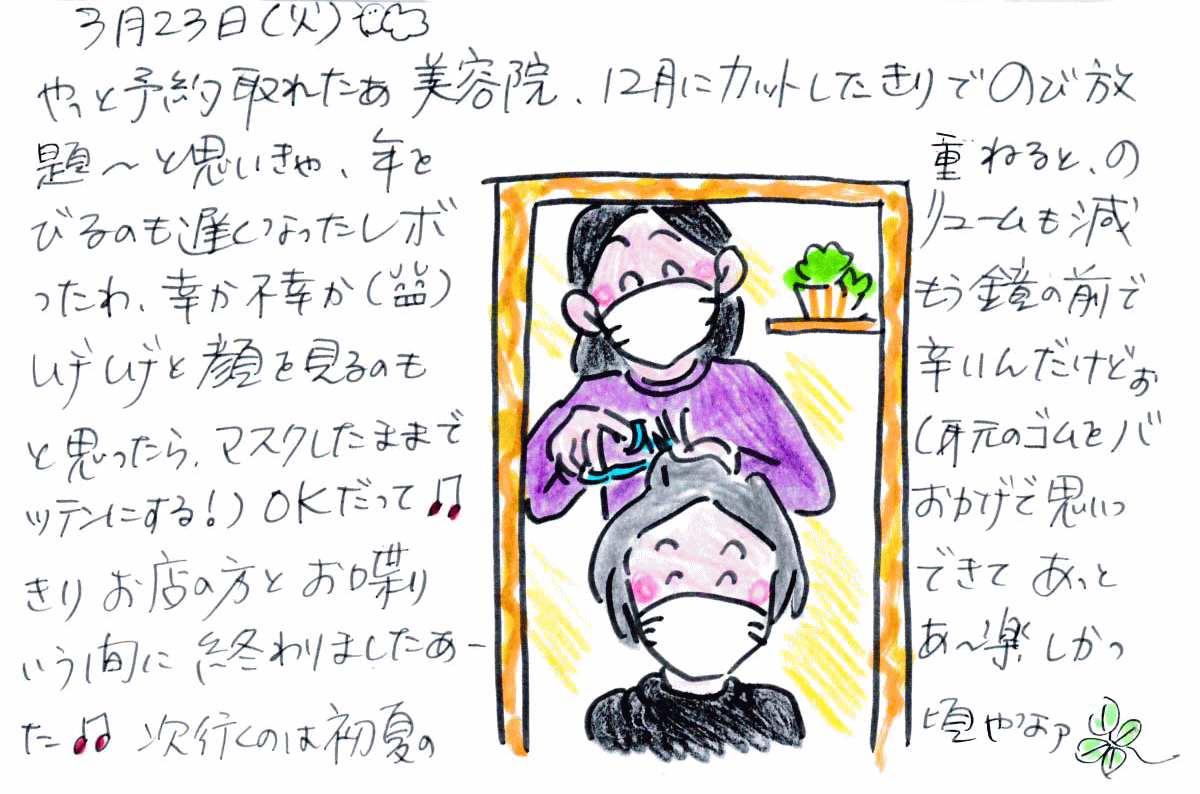 3月23日(火)
やっと予約取れたあ 美容院、12月にカットしたきりでのび放
題〜と思いきや、年を 重ねると、の
びるのも遅くなったしボ リュームも減
ったわ、幸か不幸か もう鏡の前で
しげしげと顔を見るのも 辛いんだけどぉ
と思ったら、マスクしたままで (耳元のゴムをバ
ッテンにする!) OKだって♫ おかげで思いっ
きり お店の方と お喋り できて あっと
いう間に 終わりましたあー あ〜楽しかっ
た♫ 次行くのは初夏の 頃やなァ